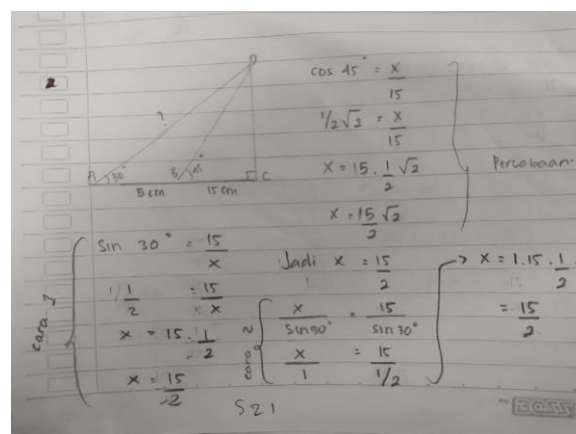 2
D
?
A 30° B 45° C
5 cm 15 cm
cos 45° = x/15
1/2 √2 = x/15
x = 15 . 1/2 √2
x = 15/2 √2
Percobaan
cara 1
Sin 30° = 15/x
1/2 = 15/x
x = 15 . 1/2
x = 15/2
Jadi x = 15/2
cara 2
x/Sin 90° = 15/Sin 30°
x/1 = 15/1/2
→ x = 1.15.1/2
= 15/2
S21
BOSS